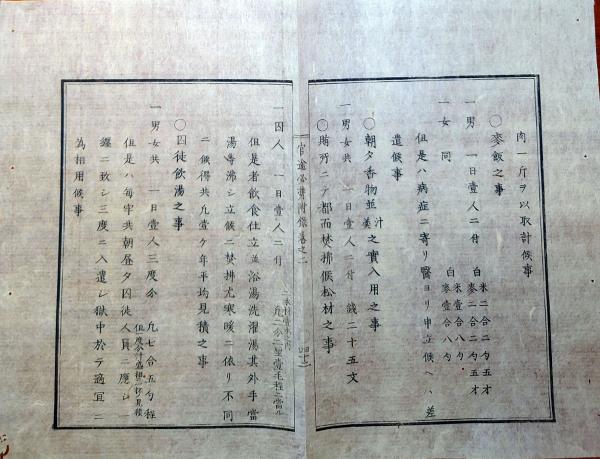 肉一斤ヲ以取計候事
〇麥飯之事
一男 一日壹人二付 米二合二勺五才
白麥二合二勺五才
一女 同 米壹合八勺
白麥壹合八勺
但是ハ病症ニ寄リ醫ヨリ申立候ヘハ差
遣候事
〇朝夕香物並汁之實入用之事
一男女共 一日壹人二付 錢二十五文
〇賄所ニテ都而焚拂候松材之事
官途必携附録卷之二
四十二
一囚人 一日壹人二付
但是者飲食仕立並浴湯洗濯湯其外手當
湯等沸シ立候ニ焚拂尤寒暖ニ依リ不同
ニ候得共九壹ケ年平均見積之事
〇囚徒飲湯之事
一男女共 一日壹人三度分 九七合五勺程
但是ハ每牢共朝昼夕囚徒人員ニ應シ
纏ニ致シ三度ニ入遣シ獄中於テ適宜ニ
為相用候事